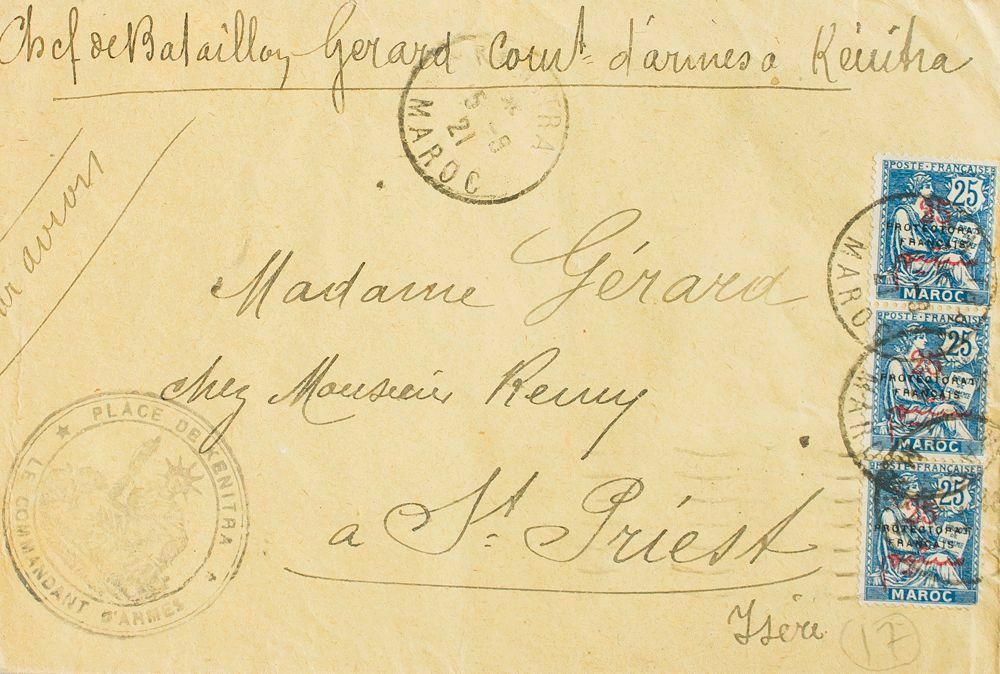 Chef de Bataillon Gerard Comt d'armes a Kénitra
KENITRA
5 -9
21
MAROC
par avion
Madame Gérard
chez Monsieur Remy
a St. Priest
Isère
17
PLACE DE KENITRA
LE COMMANDANT D'ARMES
POSTE FRANÇAISE
25
25
PROTECTORAT
FRANÇAIS
MAROC
POSTE FRANÇAISE
25
25
PROTECTORAT
FRANÇAIS
MAROC
POSTE FRANÇAISE
25
25
PROTECTORAT
FRANÇAIS
MAROC
MAROC